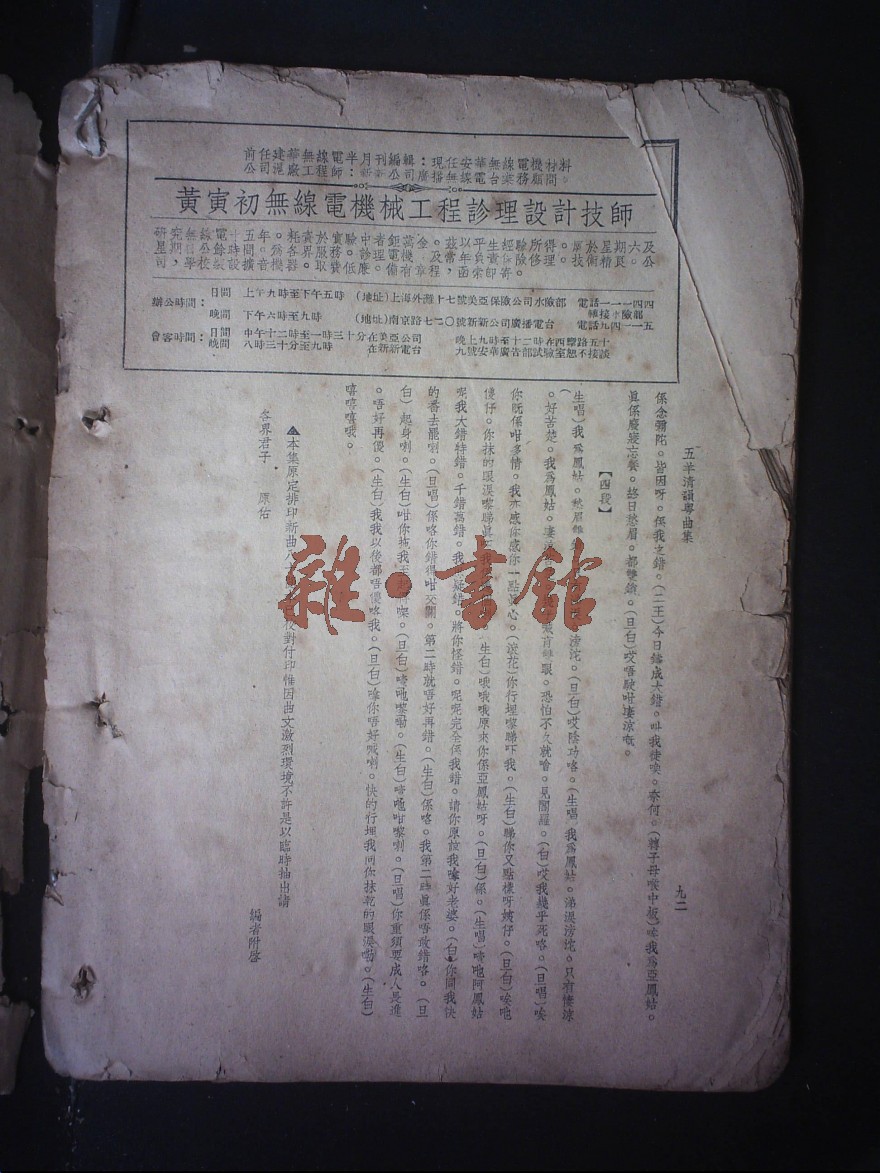 前任建華無線電半月刊編輯：現任安華無線電機材料
公司滬廠工程師：新新公司廣播無線電台業務顧問。
黃寅初無線電機械工程診理設計技師
研究無線電十五年。耗資於實驗中者鉅萬金。茲以平生經驗所得。
辦公時間：
日間 上午九時至下午五時 (地址)上海外灘十七號美亞保險公司水險部 電話一一一四四 轉接水險部
晚間 下午六時至九時 (地址)南京路七二〇號新新公司廣播電台 電話九四一一五
會客時間：
日間 中午十二時至一時三十分在美亞公司
晚間 八時三十分至九時 在新新電台
晚上九時至十二時在四川路五十
九號安華廣告部試驗室恕不接談
五羊清韻粵曲集
九二
係念彌陀。皆因呀。係我之錯。(二王)今日鑄成大錯。叫我徒喚。奈何。(轉子母喉中板)唉我為亞鳳姑。
真係廢寢忘餐。終日愁眉。都雙鎖。(旦白)哎唔駛咁淒涼嘅。
【四段】
(生唱)我為鳳姑。愁眉雙
滂沱。(旦白)哎陰功咯。(生唱)我為鳳姑。涕淚滂沱。只有悽涼
。好苦楚。我為鳳姑。
恐怕不久就噲。見閻羅。(白)哎我幾乎死咯。(旦唱)唉
你既係咁多情。我亦感你感你一點
心。(滾花)你行埋嚟睇吓我。(生白)睇你又點樣呀姨仔。(旦白)唉吔
傻仔。你抹的眼淚嚟睇真
生白)哦哦哦原來你係亞鳳姑呀。(旦白)係。(生唱)唥吔阿鳳姑
呢我大錯特錯。千錯萬錯。我
錯。將你怪錯。呢呢完全係我錯。請你原諒我
好老婆。(白)你同我快
的番去罷喇。(旦唱)係咯你錯得咁交關。第二時就唔好再錯。(生白)係咯。我第二時真係唔敢錯咯。(旦
白)起身喇。(生白)咁你拖我
喫。(旦白)唥吔嚟嘞。(生白)唥吔咁嚟喇。(旦唱)你重須要成人長進
。唔好再傻。(生白)我我以後都唔傻咯我。(旦白)嗱你唔好喊喇。快的行埋我同你抹乾的眼淚嘞。(生白)
嘻嘻嘻哦。
▲本集原定排印新曲八
校對付印惟因曲文激烈環境不許是以臨時抽出請
各界君子 原佑
編者附啓
雜·書館